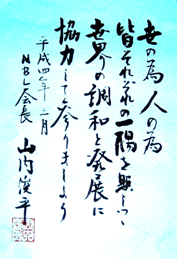 世の為人の為
皆それぞれの一隅を照らし
世界の調和と発展に
協力して参りましょう
平成四年三月
NBL会長
山内俊平